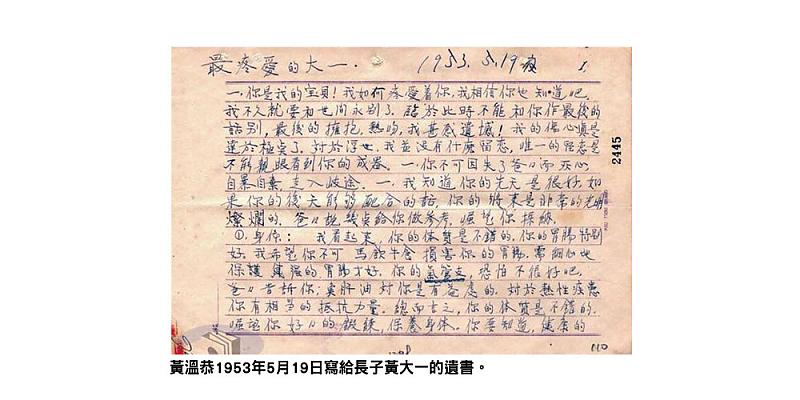 最疼愛的大一.
1953.5.19夜
I.
一.你是我的宝貝!我如何疼愛着你,我相信你也知道吧.
我不久就要和世间永别了.臨於此時不能和你作最後的
話别,最後的擁抱,熱吻,我甚感遺憾!我的傷心真是
達於極点了.对於浮世,我並没有什広留恋,唯一的留恋是
不能親眼看到你的成器.一.你不可因失了爸〃而灰心
自暴自棄,走入歧途.一.我知道你的先天是很好,如
果你的後天能够配合的話,你的將来是非常的光明
燦爛的.爸〃說幾点給你做参考,
①.身体: 我看起来,你的体質是不錯的.你的胃腸特别
好.我希望你不可馬飲牛食損害你的胃腸.需細心也
保護健强的胃腸才好.你的氣管支,恐怕不很好吧.
爸〃告訴你:魚肝油对你是有益處的.对於熱性疾患
你有相当的抵抗力量.總而言之,你的体質是不錯的.
你好〃的鍛鍊,保養身体.你要知道,健康的
2445
110
黃溫恭1953年5月19日寫給長子黃大一的遺書。